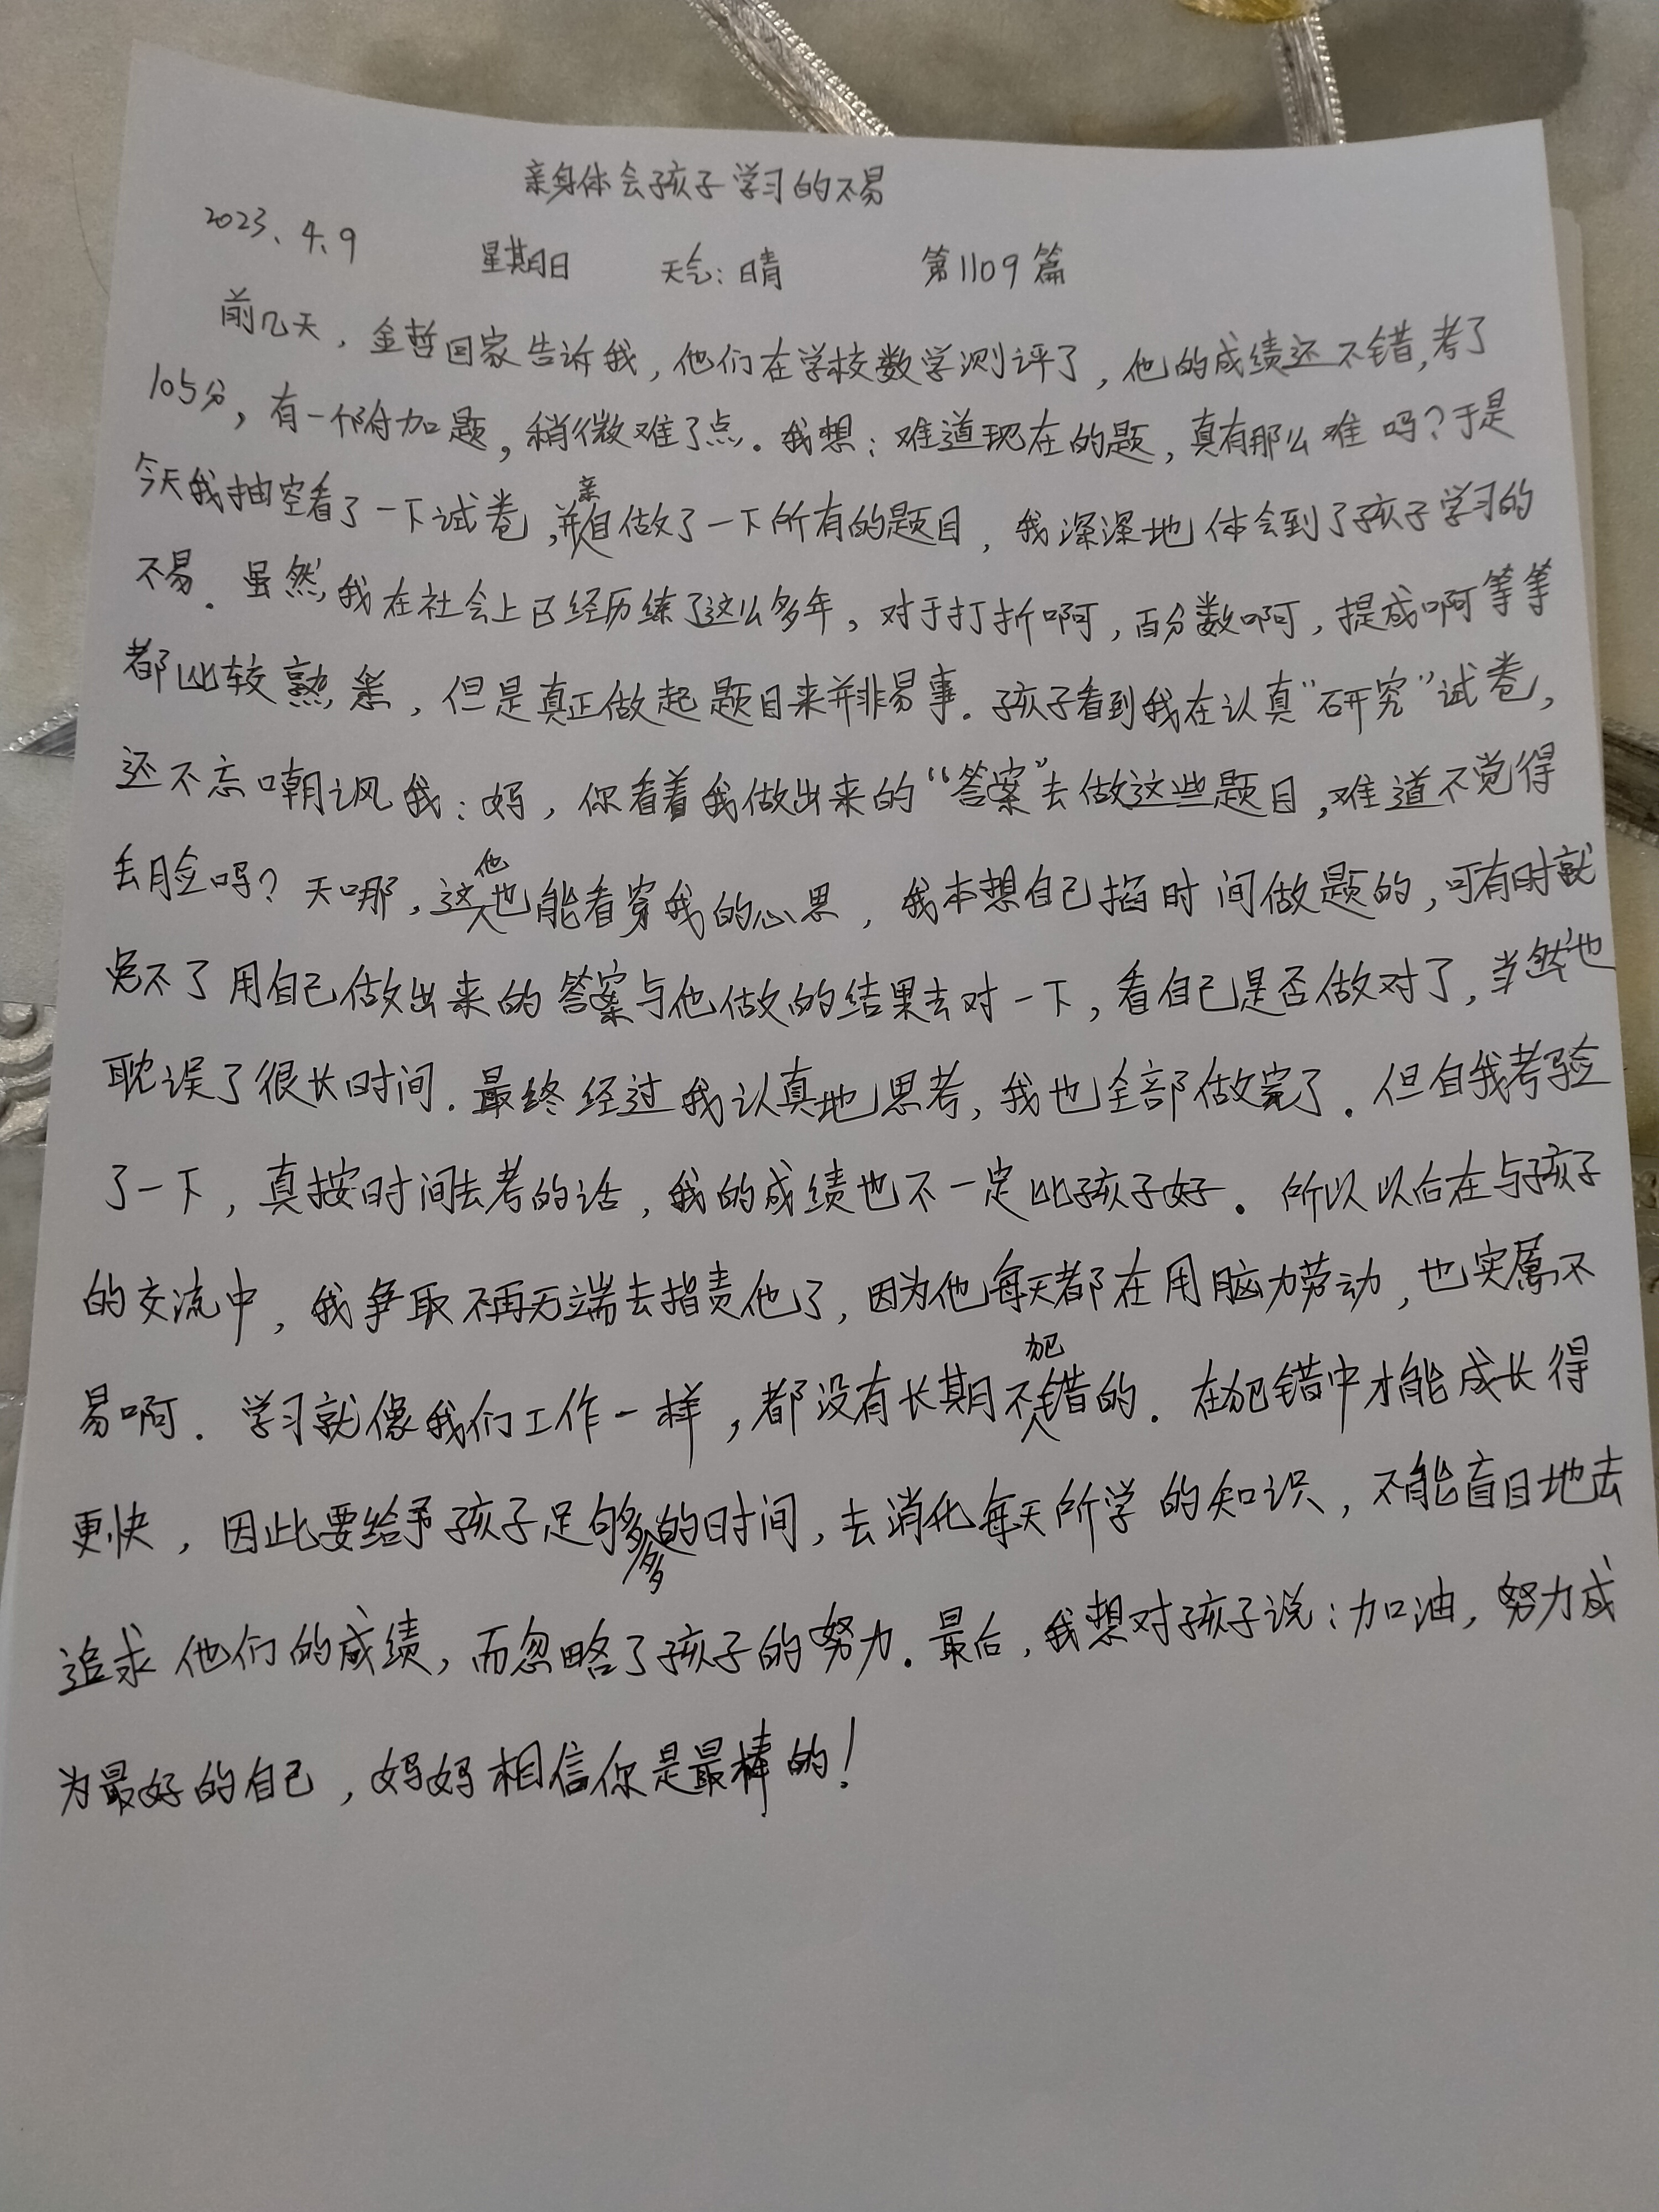 亲身体会孩子学习的不易
2023、4、9 星期日 天气:晴 第1109篇
前几天,金哲回家告诉我,他们在学校数学测评了,他的成绩还不错,考了
105分,有一个附加题,稍微难了点。我想:难道现在的题,真有那么难吗?于是
今天我抽空看了一下试卷,并亲自做了一下所有的题目,我深深地体会到了孩子学习的
不易.虽然我在社会上已经历练了这么多年,对于打折啊,百分数啊,提成啊等等
都比较熟悉,但是真正做起题目来并非易事.孩子看到我在认真“研究”试卷,
还不忘嘲讽我:妈,你看着我做出来的“答案”去做这些题目,难道不觉得
丢脸吗?天哪,这他也能看穿我的心思,我本想自己掐时间做题的,可有时就
免不了用自己做出来的答案与他做的结果去对一下,看自己是否做对了,当然也
耽误了很长时间.最终经过我认真地思考,我也全部做完了.但自我考验
了一下,真按时间去考的话,我的成绩也不一定比孩子好.所以以后在与孩子
的交流中,我争取不再无端去指责他了,因为他每天都在用脑力劳动,也实属不
易啊.学习就像我们工作一样,都没有长期不犯错的.在犯错中才能成长得
更快,因此要给予孩子足够多的时间,去消化每天所学的知识,不能盲目地去
追求他们的成绩,而忽略了孩子的努力.最后,我想对孩子说:加油,努力成
为最好的自己,妈妈相信你是最棒的!